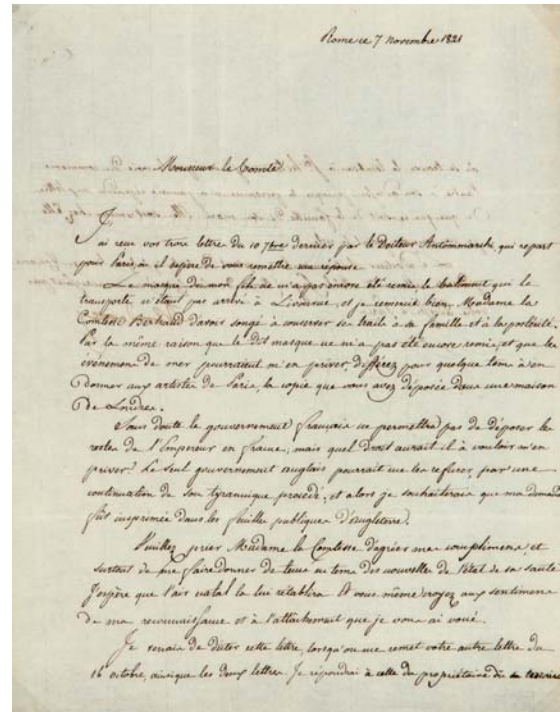 Rome ce 7 novembre 1821
Monsieur le Comte
J'ai reçu vos trois lettre du 10 7bre dernier par le Docteur Antommarchi, qui repart
pour Paris, où il espère de vous remettre ma réponse.
Le masque de mon fils ne m'a pas encore été remis, le batiment qui le
transporte n'étant pas arrivé à Livourne, et je remercie bien Madame la
Comtesse Bertrand d'avoir songé à conserver ses traits à sa famille et à la postérité.
Par la même raison que le dit masque ne m'a pas été encore remis, et que les
événemens de mer pourraient m'en priver, différez pour quelque tems à en
donner aux artistes de Paris, la copie que vous avez déposée dans une maison
de Londres.
Sans doute le gouvernement français ne permettra pas de déposer les
restes de l'Empereur en france, mais quel droit aurait il à vouloir m'en
priver? Le seul gouvernement anglais pourrait me les refuser, par une
continuation de son tyrannique procédé, et alors je souhaiterais que ma demande
fût imprimée dans les feuilles publiques d'Angleterre.
Veuillez prier Madame la Comtesse d'agréer mes complimens, et
surtout de me faire donner de tems en tems des nouvelles de l'état de sa santé
J'espère que l'air natal la lui rétablira. Et vous même croyez aux sentimens
de ma reconnaissance et à l'attachement que je vous ai voué.
Je venais de dicter cette lettre, lorsqu'on me remet votre autre lettre du
16 octobre, ainsique les deux lettres. Je répondrai à celle du propriétaire du